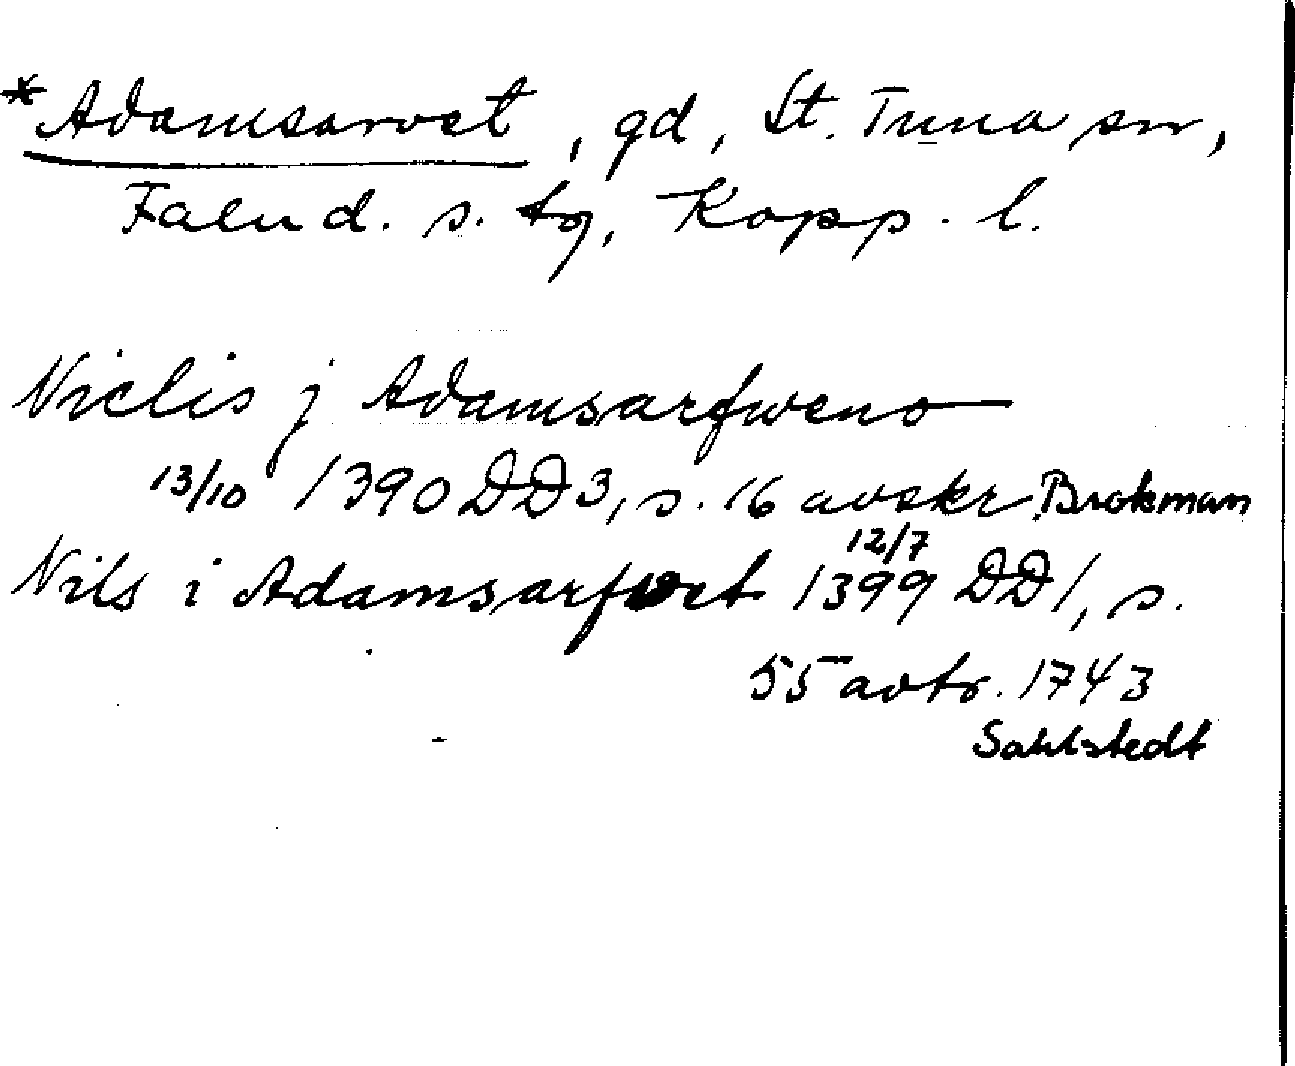 *Adamsarvet, gd, St. Tuna sn,
Falu d. s. tg, Kopp. l.
Niclis j Adamsarfweno
13/10 1390 DD3, s. 16 avskr Brokman
Nils i Adamsarfwet 12/7 1399 DD1, s.
55 avtr. 1743
Sahlstedt